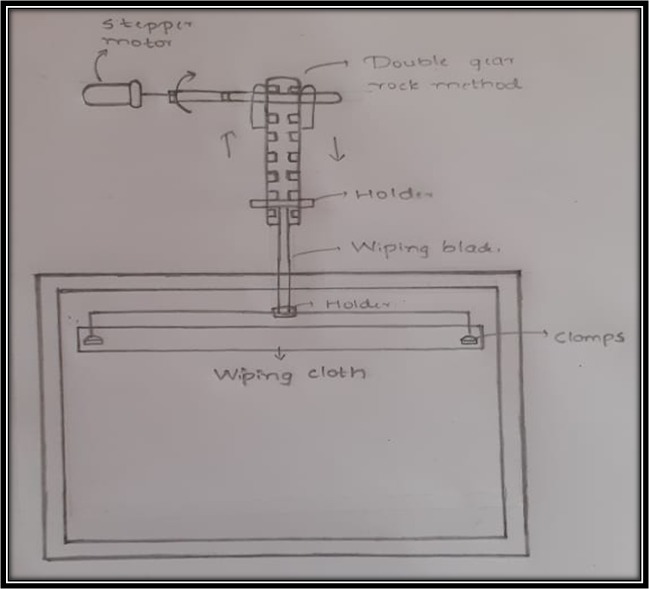 Stepper
motor
Double gear
rock method
Holder
Wiping blade.
Holder
Clomps
Wiping cloth